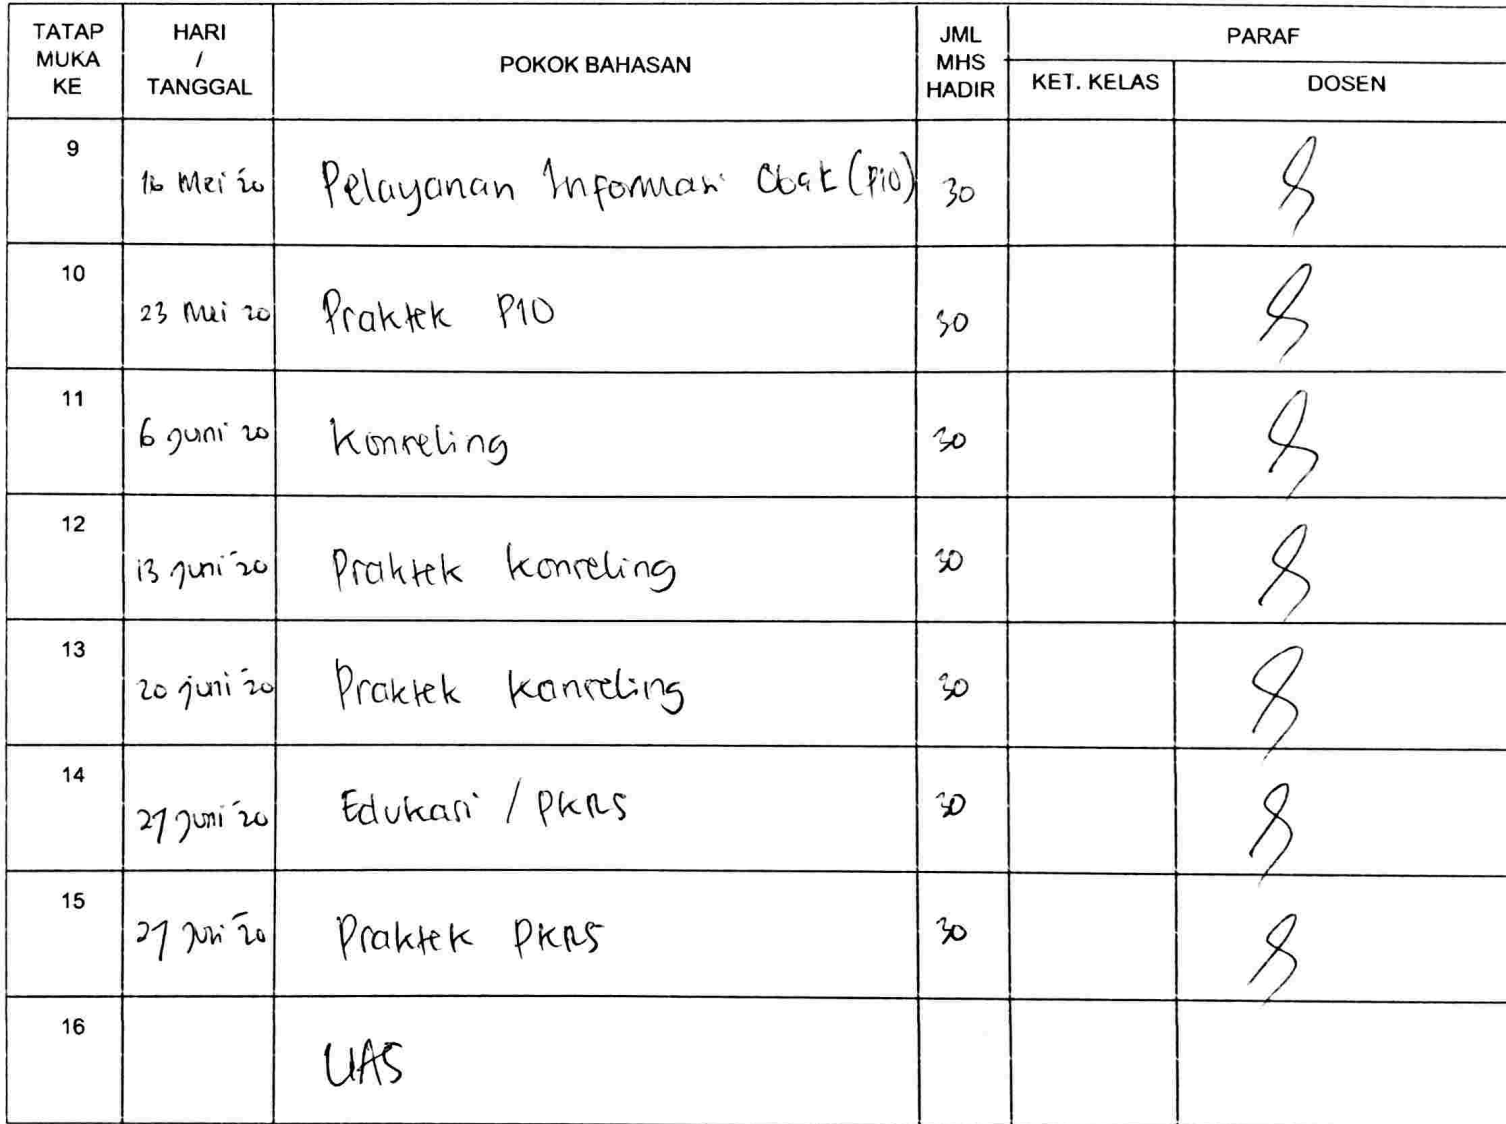 TATAP MUKA KE
HARI / TANGGAL
POKOK BAHASAN
JML MHS HADIR
PARAF
KET. KELAS
DOSEN
9
16 Mei '20
Pelayanan Informasi Obat (PIO)
30
10
23 Mei 20
Praktek PIO
30
11
6 Juni 20
Konseling
30
12
13 Juni '20
Praktek Konseling
30
13
20 juni '20
Praktek Konseling
30
14
27 Juni '20
Edukasi / PKRS
30
15
27 Juni '20
Praktek PKRS
30
16
UAS